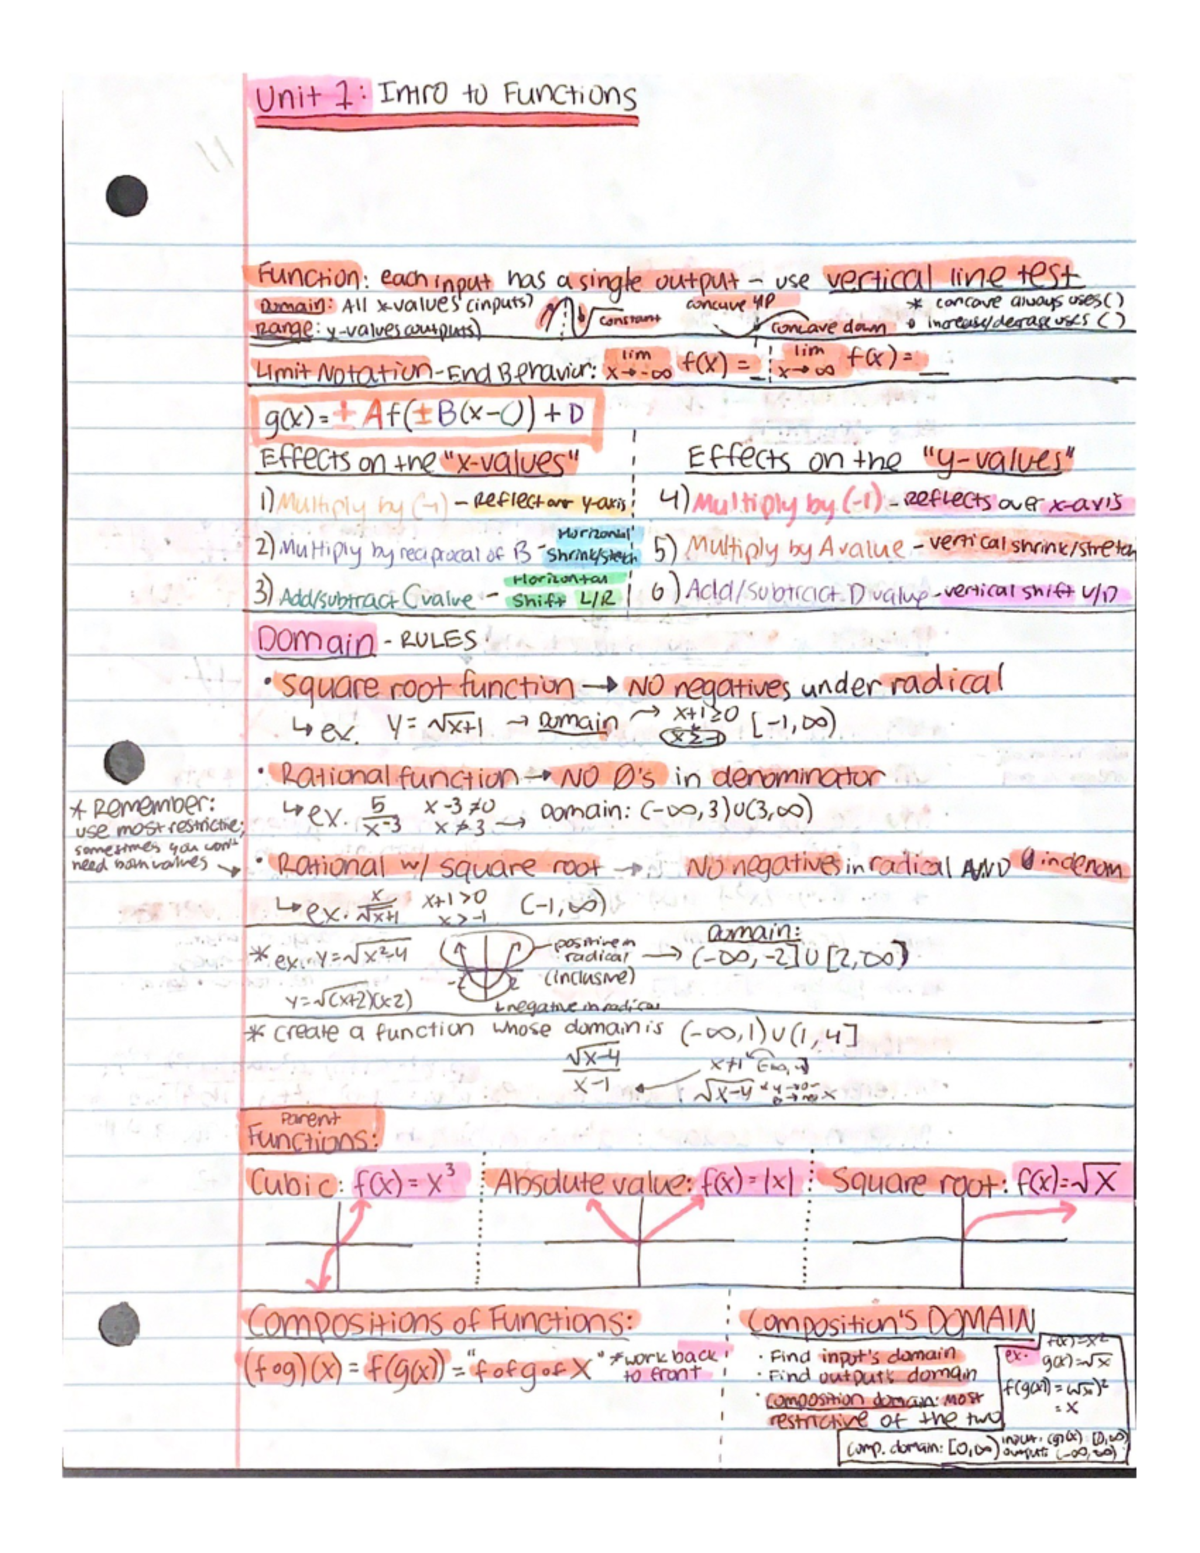 Unit 1: Intro to Functions
Function: each input has a single output – use vertical line test
Domain: All x-values (inputs)
Range: y-values (outputs)
constant
concave up
concave down
* concave always uses ( )
* increase/decrease uses ( )
Limit Notation - End Behavior: lim x→-∞ f(x) = _ lim x→∞ f(x) = _
g(x) = ± A f(± B(x-C)) + D
Effects on the "x-values"
1) Multiply by (-1) - Reflect over y-axis
2) Multiply by reciprocal of B - Horizontal Shrink/stretch
3) Add/subtract C value - Horizontal Shift L/R
Effects on the "y-values"
4) Multiply by (-1) - Reflects over x-axis
5) Multiply by A value - vertical shrink/stretch
6) Add/subtract D value - vertical shift U/D
Domain - RULES
• square root function → NO negatives under radical
↳ ex. y = √x+1 → Domain → x+1≥0 [-1,∞)
x≥-1
• Rational function → NO 0's in denominator
↳ ex. 5/x-3 x-3≠0 x≠3 → Domain: (-∞,3)∪(3,∞)
* Remember:
use most restrictive;
sometimes you won't
need both values →
• Rational w/ square root → NO negatives in radical AND 0 in denom
↳ ex. x/√x+1 x+1>0 x>-1 (-1,∞)
* ex. y=√x²-4
y=√(x+2)(x-2)
-2 2
positive in radical (inclusive)
↳ negative in radical
→ Domain: (-∞,-2]∪[2,∞)
* create a function whose domain is (-∞,1)∪(1,4]
√x-4/x-1
x≠1
√x-4
Parent
Functions:
Cubic: f(x) = x³
Absolute value: f(x) = |x|
Square root: f(x)=√x
Compositions of Functions:
(f∘g)(x) = f(g(x)) = "f of g of x" *work back to front
Composition's DOMAIN
• Find input's domain
• Find output's domain
• composition domain: most
restrictive of the two
ex. f(x)=x²
g(x)=√x
f(g(x)) = (√x)²
= x
comp. domain: [0,∞) input: (g(x)) [0,∞)
output: (-∞,∞)